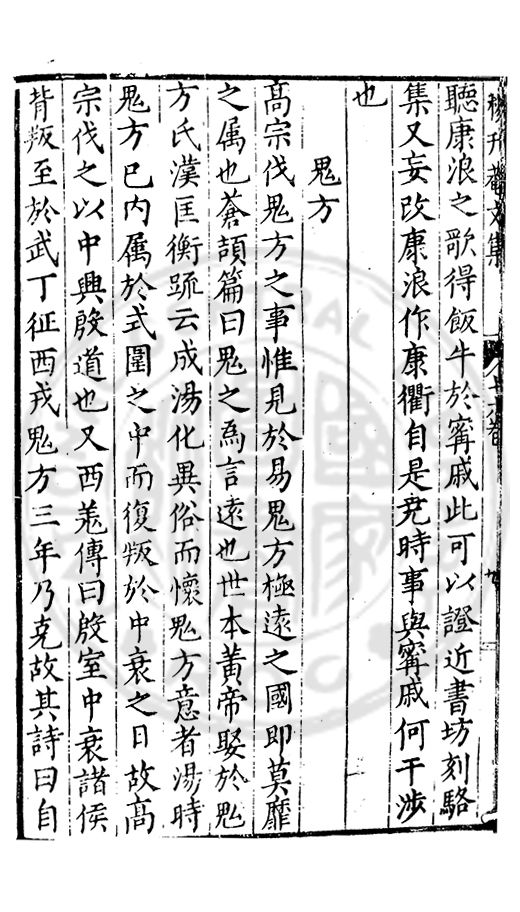 聽康浪之歌得飯牛於甯戚此可以證近書坊刻駱
集又妄改康浪作康衢自是尭時事與甯戚何干涉
也
鬼方
髙宗伐鬼方之事惟見於易鬼方極遠之國即莫靡
之属也蒼頡篇曰鬼之為言遠也世本黃帝娶於鬼
方氏漢匡衡疏云成湯化異俗而懷鬼方意者湯時
鬼方已内属於式圍之中而復叛於中衰之日故髙
宗伐之以中興殷道也又西羗傳曰殷室中衰諸侯
背叛至於武丁征西戎鬼方三年乃克故其詩曰自